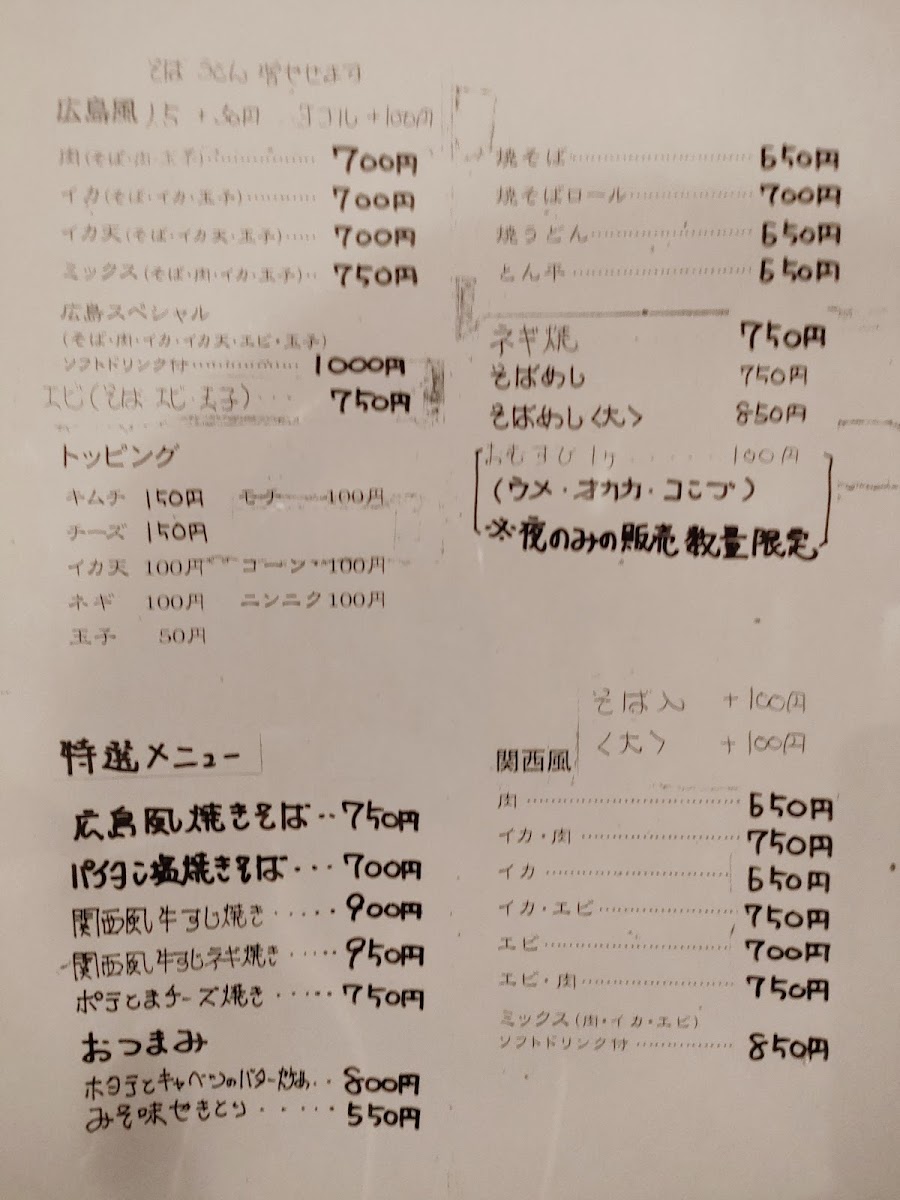 広島風 1.5 +50円 ダブル +100円
肉(そば・肉・玉子) 700円
イカ(そば・イカ・玉子) 700円
イカ天(そば・イカ天・玉子) 700円
ミックス(そば・肉・イカ・玉子) 750円
広島スペシャル
(そば・肉・イカ・イカ天・エビ・玉子)
ソフトドリンク付 1000円
エビ(そば エビ・玉子) 750円
トッピング
キムチ 150円 モチ 100円
チーズ 150円
イカ天 100円 コーン 100円
ネギ 100円 ニンニク 100円
玉子 50円
特選メニュー
広島風焼きそば‥750円
パイタン塩焼きそば・・・700円
関西風牛すじ焼き・・・・・900円
関西風牛すじネギ焼き・・・・・950円
ポテとまチーズ焼き・・・・・750円
おつまみ
ホタテとキャベツのバター炒め‥800円
みそ味せきとり・・・・・550円
焼そば 650円
焼そばロール 700円
焼うどん 650円
とん平 650円
ネギ焼 750円
そばめし 750円
そばめし〈大〉 850円
おむすび 1ケ 100円
(ウメ・オカカ・コンブ)
※夜のみの販売 数量限定
そば入 +100円
〈大〉 +100円
関西風
肉 650円
イカ・肉 750円
イカ 650円
イカ・エビ 750円
エビ 700円
エビ・肉 750円
ミックス(肉・イカ・エビ)
ソフトドリンク付 850円